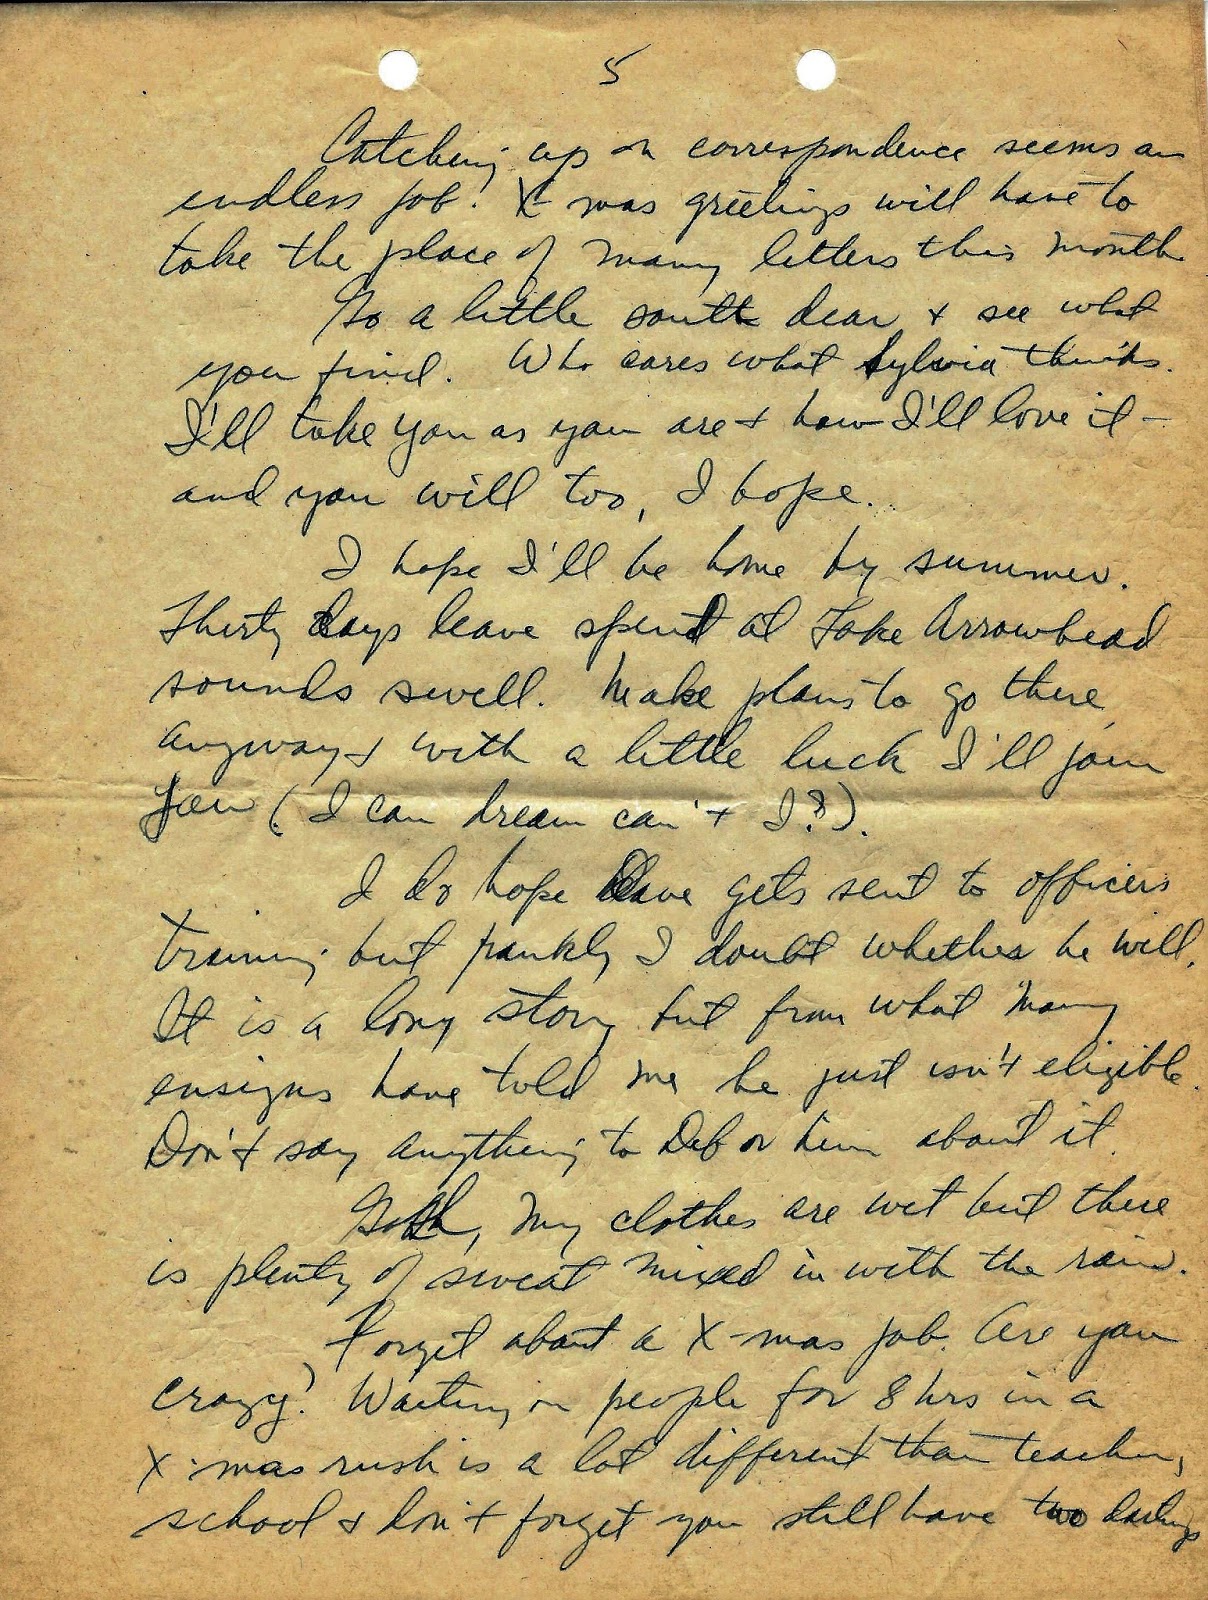 5
Catching up on correspondence seems an
endless job. X-mas greetings will have to
take the place of many letters this month
Go a little south dear + see what
you find. Who cares what Sylvia thinks.
I'll take you as you are + how I'll love it -
and you will too, I hope.
I hope I'll be home by summer.
Thirty days leave spent at Lake Arrowhead
sounds swell. Make plans to go there
anyway + with a little luck I'll join
you (I can dream can't I?).
I do hope Dave gets sent to officers
training but frankly I doubt whether he will.
It is a long story but from what many
ensigns have told me he just isn't eligible.
Don't say anything to Deb or him about it.
Gosh, my clothes are wet but there
is plenty of sweat mixed in with the rain.
Forget about a X-mas job. Are you
crazy? Waiting on people for 8 hrs in a
X-mas rush is a lot different than teaching
school + don't forget you still have two darlings